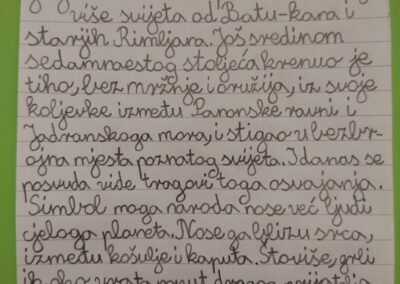 više svijeta od Batu-kana i
starijh Rimljana. Još sredinom
sedamnaestog stoljeća krenuo je
tiho, bez mržnje i oružija, iz svoje
koljevke između Panonske ravni i
Jadranskoga mora, i stigao u bezbr-
ojna mjesta poznatog svijeta. I danas se
posvuda vide tragovi toga osvajanja.
Simbol moga naroda nose već ljudi
cjeloga planeta. Nose ga blizu srca,
između košulje i kaputa. Štoviše, grli
ih oko vrata poput dragog prijatelja